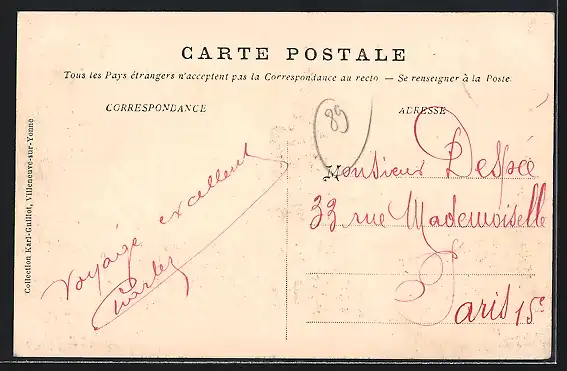 CARTE POSTALE
Tous les Pays étrangers n'acceptent pas la Correspondance au recto — Se renseigner à la Poste.
CORRESPONDANCE
ADRESSE
89
Monsieur Despée
33 rue Mademoiselle
Paris 15e
Voyage excellent
Charles
Collection Karl-Guillot, Villeneuve-sur-Yonne